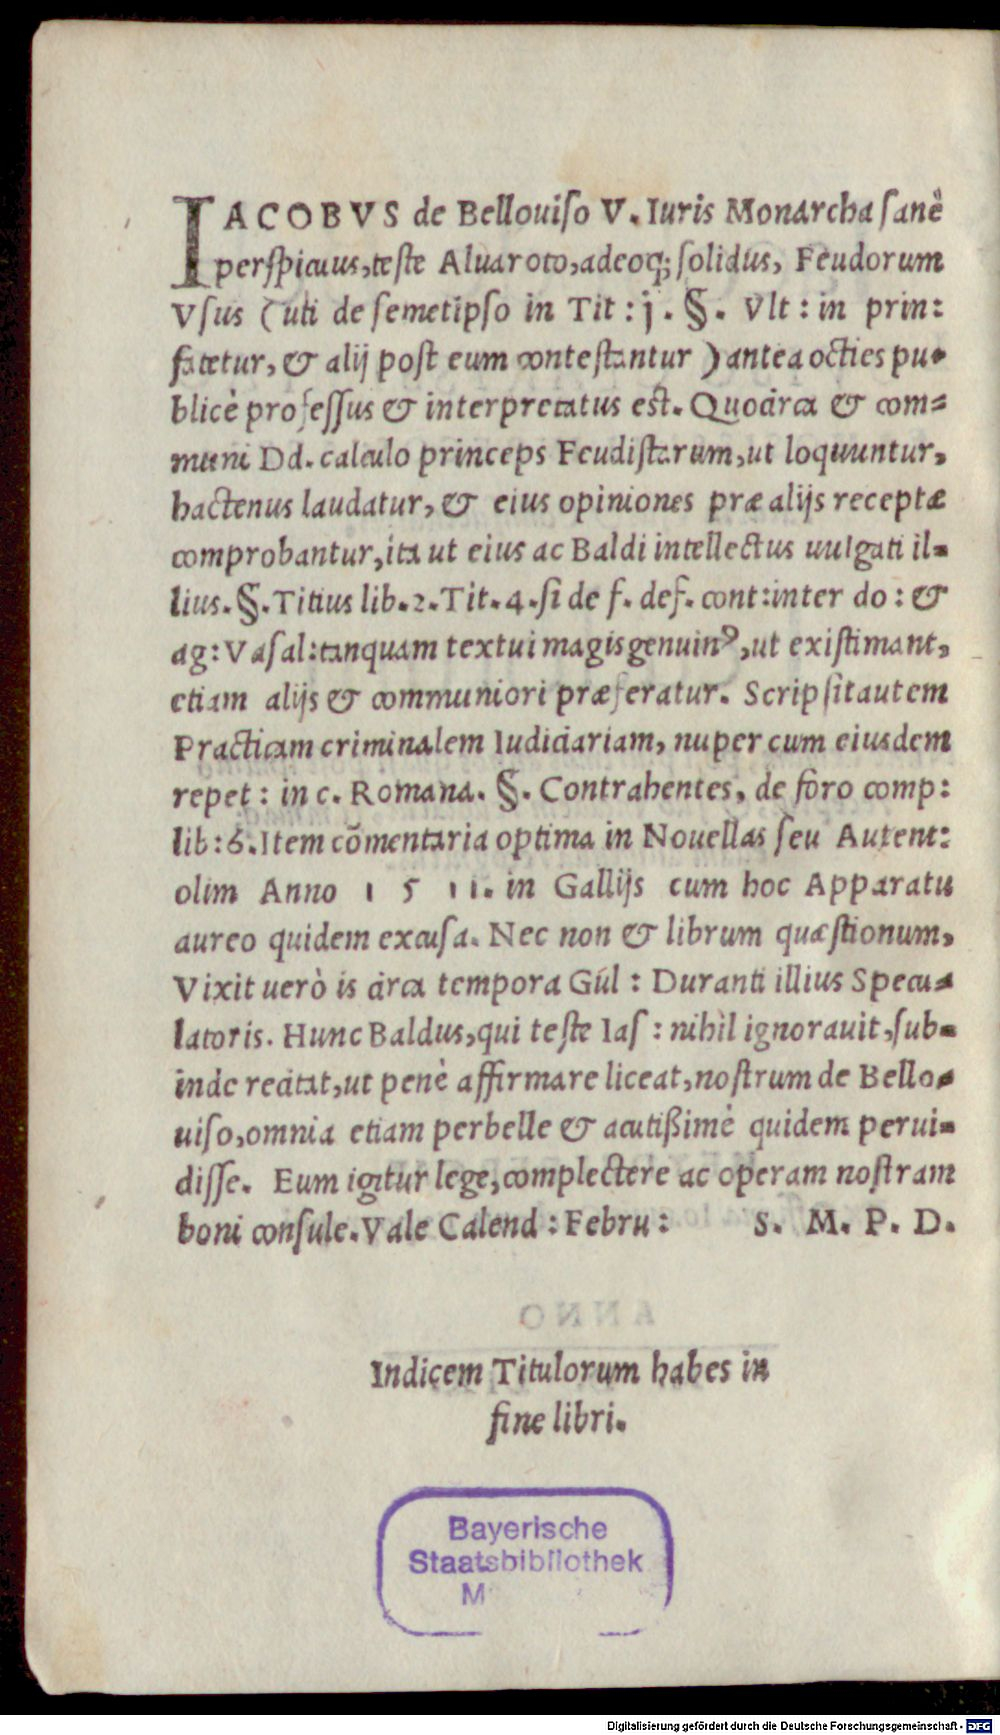 IACOBVS de Bellouiso V. Iuris Monarcha sanè
perspicuus, teste Aluaroto, adeoq; solidus, Feudorum
Vsus (uti de semetipso in Tit: j. §. Vlt: in prin:
fatetur, & alij post eum contestantur) antea octies pu-
blicè professus & interpretatus est. Quocirca & com=
muni Dd. calculo princeps Feudistarum, ut loquuntur,
hactenus laudatur, & eius opiniones præ alijs receptæ
comprobantur, ita ut eius ac Baldi intellectus uulgati il=
lius. §. Titius lib. 2. Tit. 4. si de f. def. cont: inter do: &
ag: Vasal: tanquam textui magis genuinꝰ, ut existimant,
etiam alijs & communiori præferatur. Scripsit autem
Practicam criminalem Iudiciariam, nuper cum eiusdem
repet: in c. Romana. §. Contrahentes, de foro comp:
lib: 6. Item cõmentaria optima in Nouellas seu Autent:
olim Anno 1 5 11. in Gallijs cum hoc Apparatu
aureo quidem excusa. Nec non & librum quæstionum,
Vixit uerò is circa tempora Gul: Duranti illius Specu=
latoris. Hunc Baldus, qui teste Ias: nihil ignorauit, sub=
inde recitat, ut penè affirmare liceat, nostrum de Bello=
uiso, omnia etiam perbelle & acutißimè quidem perui=
disse. Eum igitur lege, complectere ac operam nostram
boni consule. Vale Calend: Febru: S. M. P. D.
Indicem Titulorum habes in
fine libri.
Bayerische
Staatsbibliothek
M
Digitalisierung gefördert durch die Deutsche Forschungsgemeinschaft - DFG